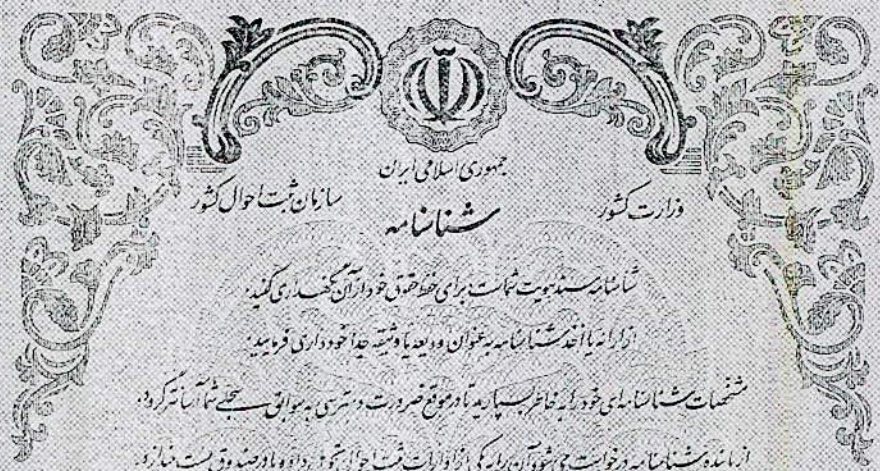 جمهوری اسلامی ایران
وزارت کشور
سازمان ثبت احوال کشور
شناسنامه
شناسنامه سند هویت شماست برای حفظ حقوق خود از آن نگهداری کنید.
از ارائه یا اخذ شناسنامه به عنوان ودیعه یا وثیقه جداً خودداری فرمایید.
مشخصات شناسنامه‌ای خود را به خاطر بسپارید تا در موقع ضرورت دسترسی به سوابق سجلی شما آسانتر گردد.
از یابنده شناسنامه درخواست می‌شود آن را به یکی از ادارات ثبت احوال تحویل داده و یا در صندوق پست بیندازد.